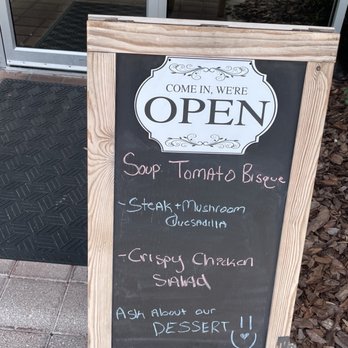 COME IN, WE'RE
OPEN
Soup Tomato Bisque
- Steak + Mushroom
Quesadilla
- Crispy Chicken
Salad
Ask About our
DESSERT!!